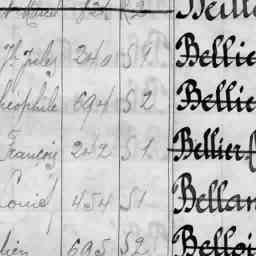 824 S 2
Th Jules 240 S 1 Bellie
Théophile 694 S 2 Bellie
François 242 S 1 Bellier
Louis 454 S 1 Bellan
695 S 2 Belloi